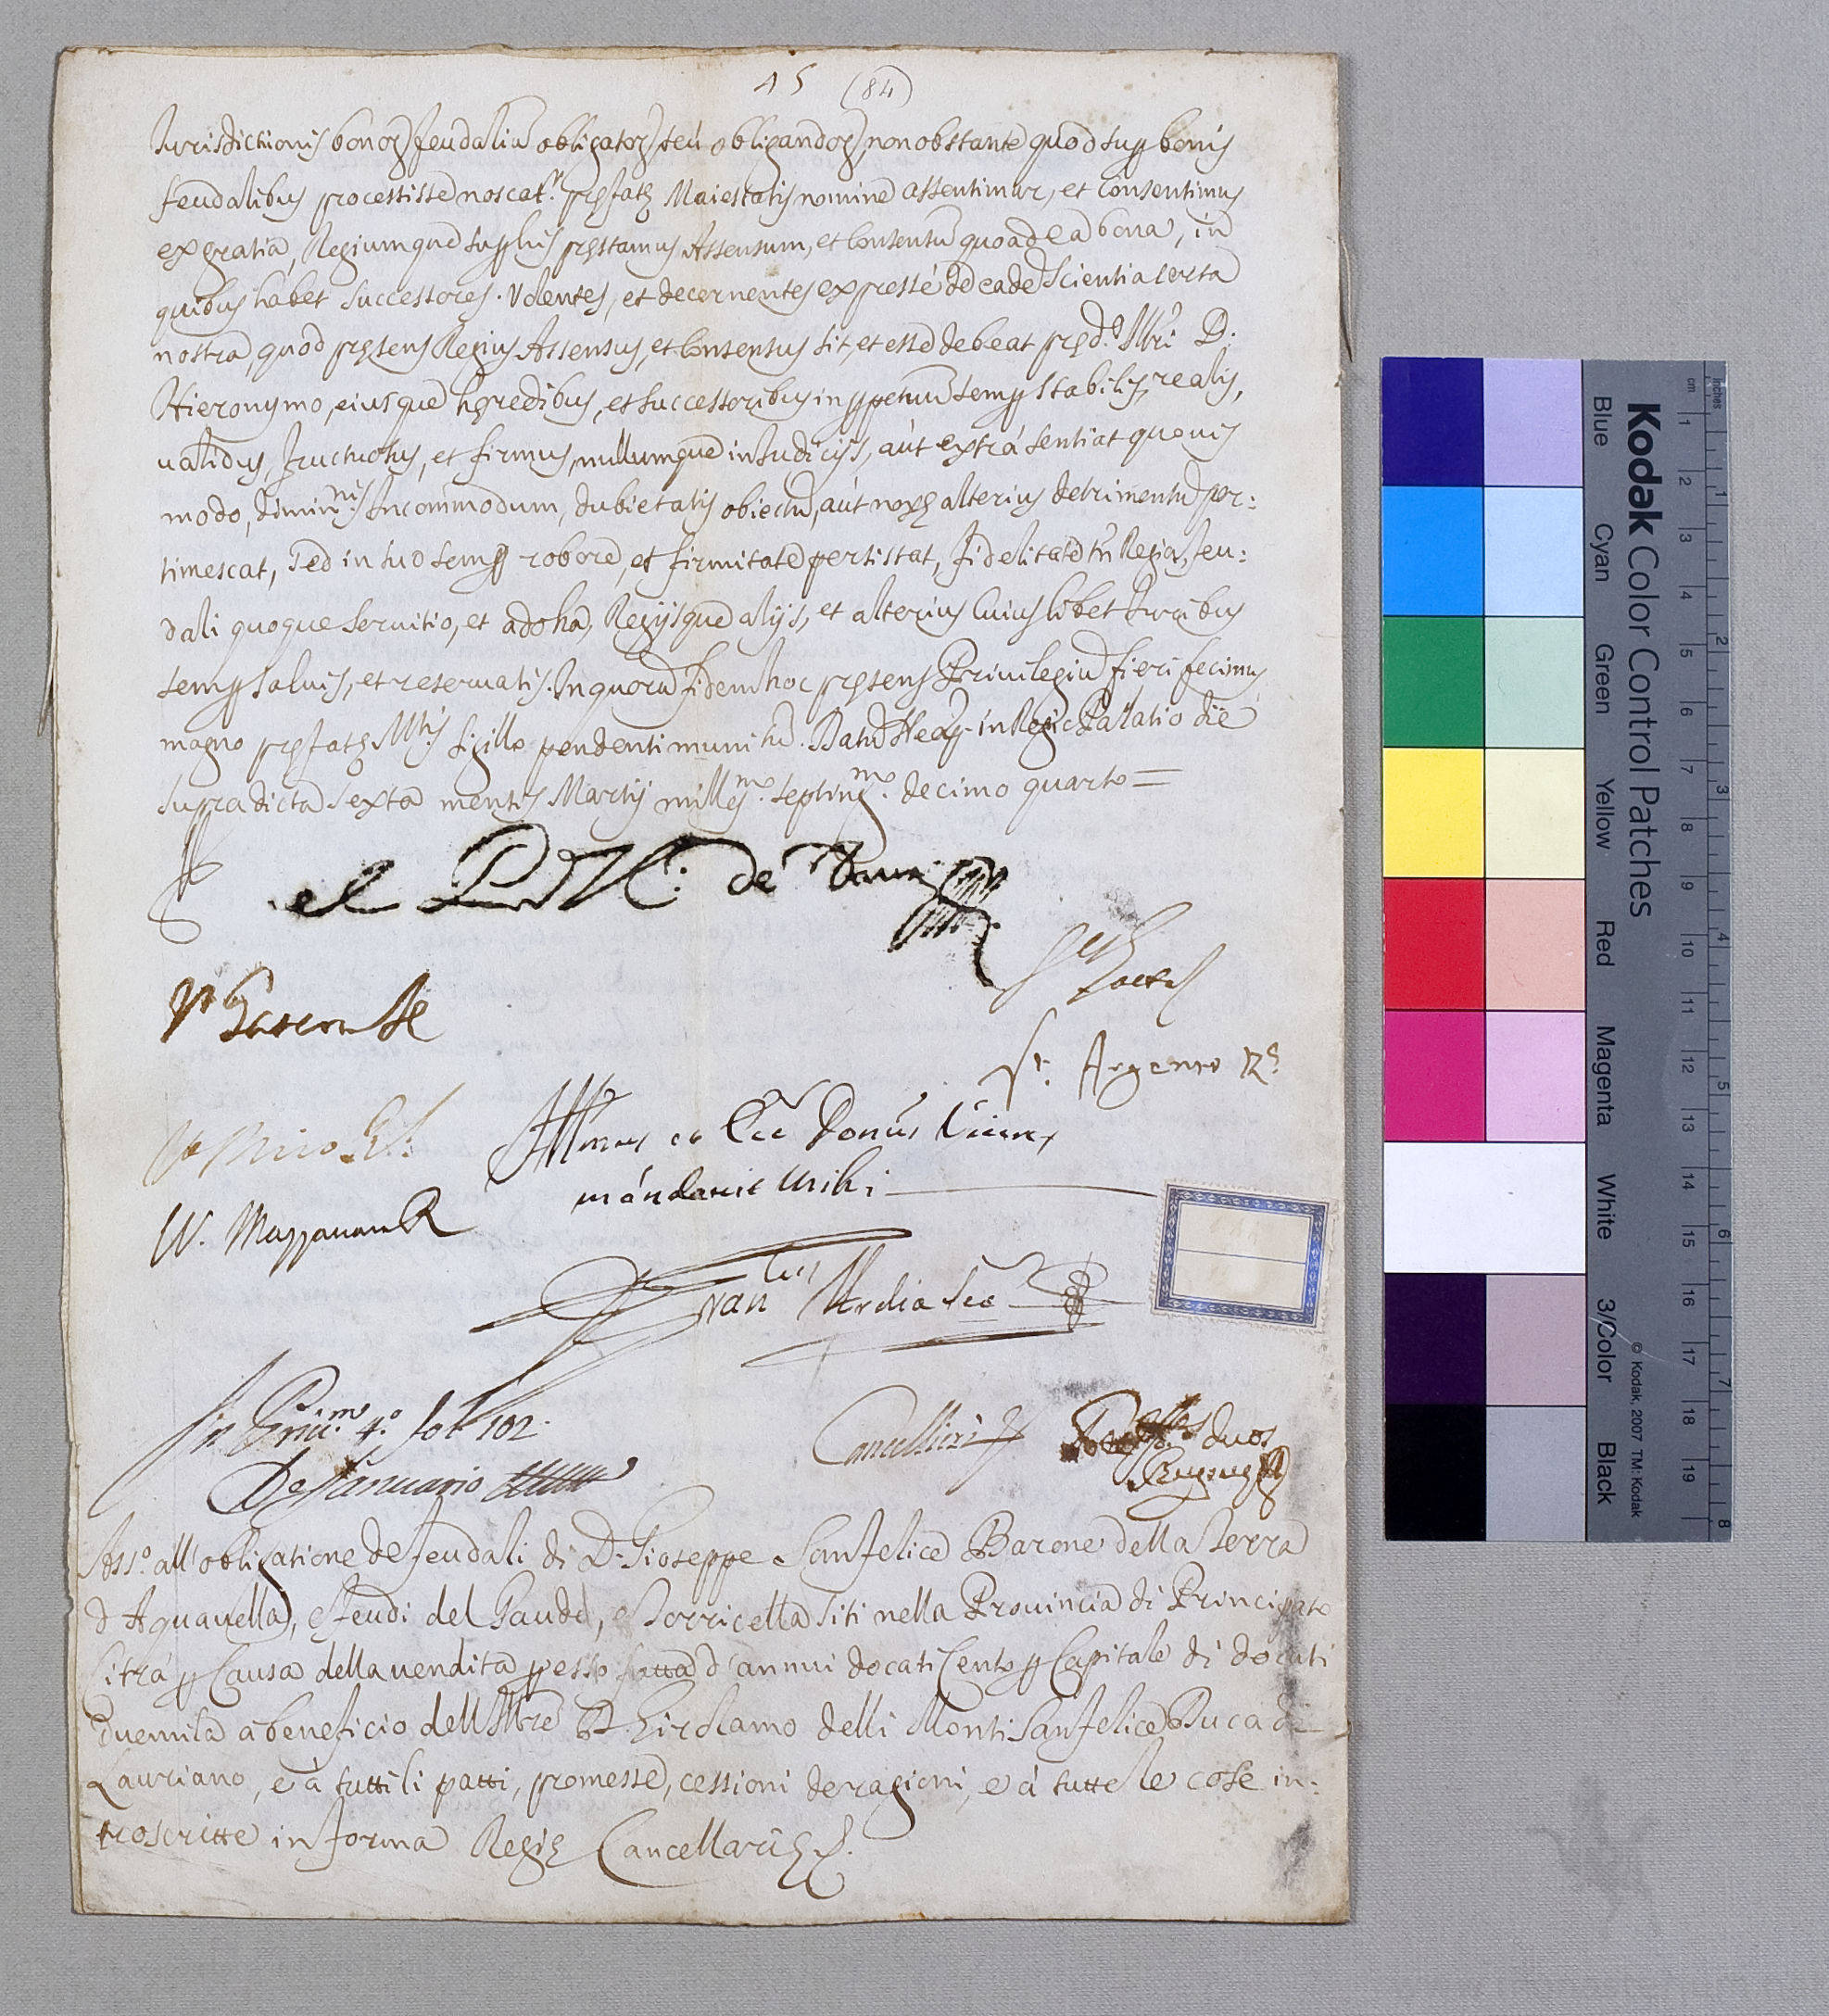 45 (84)
Jurisdictionis bonor. feudaliũ obligator. seù obligandor., non obstante quod sup. bonis
feudalibus processisse noscat.r pręfatę Maiestatis nomine assentimur, et consentimus
ex gratia, Regiumque sup. his pręstamus Assensum, et Consensũ quo ad ea bona, in
quibus habet successores. Volentes, et decernentes expressé de eadẽ scientia certa
nostra, quod pręsens Regius Assensus, et Consensus sit, et esse debeat pręd.o Ill.ri D.
Hieronymo, eiusque hęredibus, et successoribus in ppetuũ semp. stabilis, realis,
validus, fructuosus, et firmus, nullumque in Judicijs, aùt extrá sentiat quovis
modo, diminⁿⁱˢ Incommodum, dubietatis obiectũ, aùt noxę alterius detrimentũ per:
timescat, sed in suo semp. robore, et firmitate persistat, fidelitate tñ Regia, feu:
dali quoque servitio, et adoha, Regijsque alijs, et alterius Cuiuslibet Juribus
semp. salvis, et reservatis. In quorũ fidem hoc pręsens Privilegiũ fieri fecimus
magno pręfatę M.tis sigillo pendenti munitũ. Datũ Neap. in Regio Palatio die
supradicta sexta mensis Martij mill.mo septing.mo decimo quarto =
el
de
V.t Argento R.s
Ill.mus et Exc. Donus Vicerex
mandavit mihi
W. Mazzacara R
Fran.cus Ardia Sec.
In Priv.m 4.o fol. 102.
De Januario
Cancellieri
duos
Ass.o all'obligatione de feudali di D. Gioseppe Sanfelice Barone della Terra
d'Aquavella, e feudi del Gaudo, e Torricella siti nella Provincia di Principato
Citrà p. Causa della vendita p. esso fatta d'annui docati Cento p. Capitale di docati
duemila à beneficio dell'Ill.re D. Girolamo delli Monti Sanfelice Duca di
Lauriano, e à tutti li patti, promesse, cessioni de ragioni, e à tutte le cose in:
troscritte in forma Regię Cancellarię
Kodak Color Control Patches
Blue Cyan Green Yellow Red Magenta White 3/Color Black
© Kodak, 2007 TM: Kodak
cm 1 2 3 4 5 6 7 8 9 10 11 12 13 14 15 16 17 18 19
inches 1 2 3 4 5 6 7 8